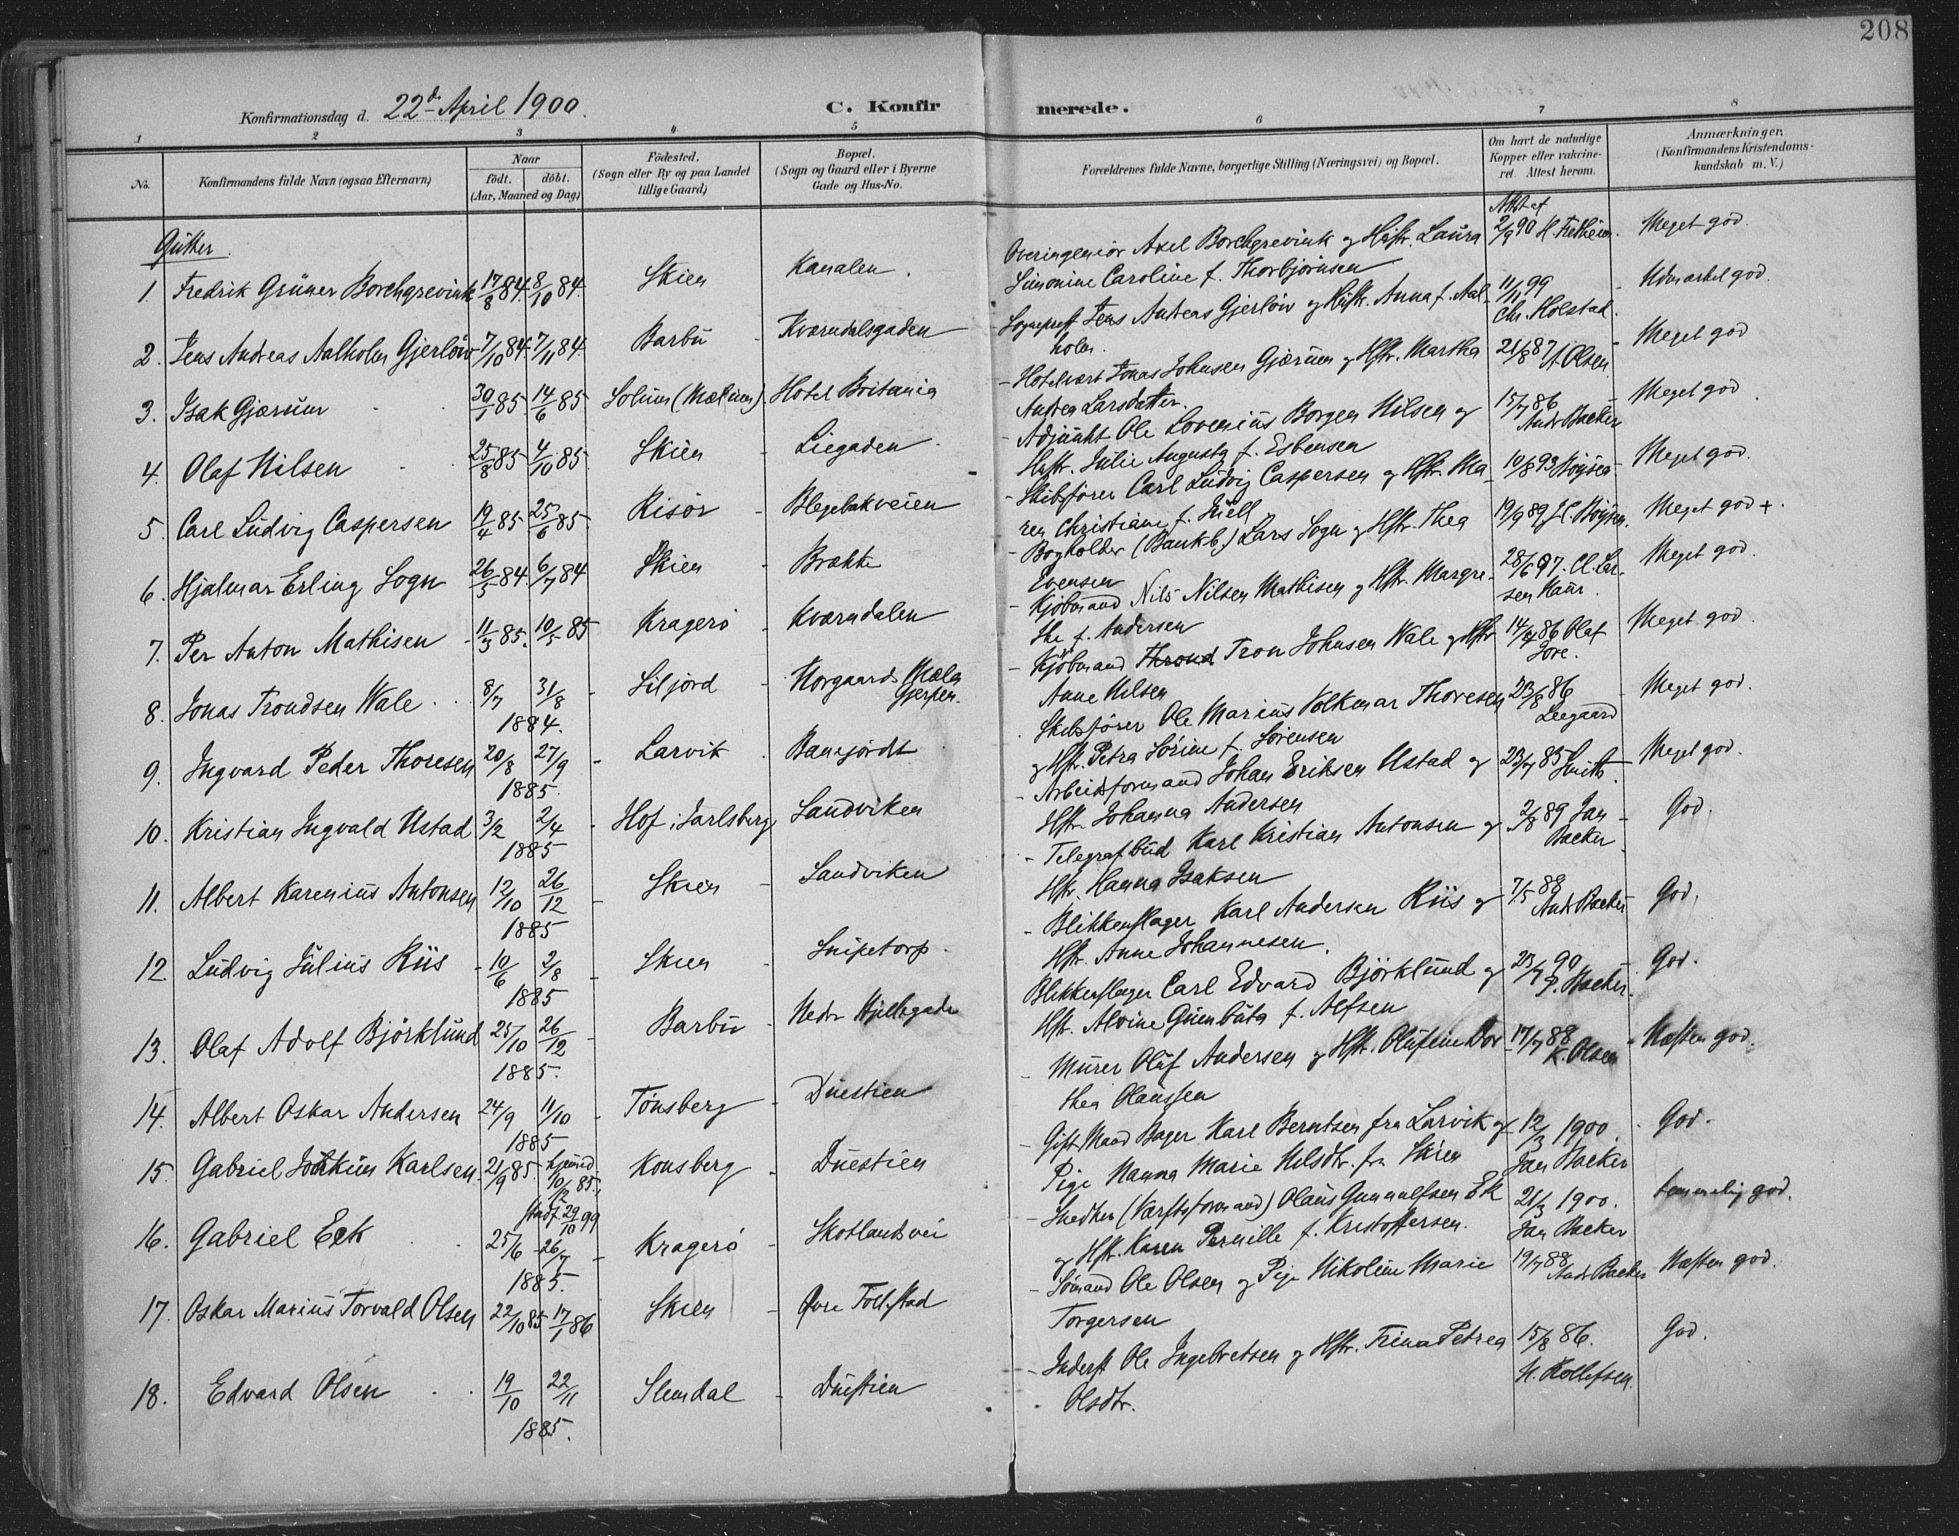 208
Konfirmationsdag d. 22d April 1900.
C. Konfirmerede.
1 2 3 4 5 6 7 8
No.
Konfirmandens fulde Navn (ogsaa Efternavn)
Naar
født. døbt.
(Aar, Maaned og Dag)
Fødested.
(Sogn eller By og paa Landet
tillige Gaard)
Bopæl.
(Sogn og Gaard eller i Byerne
Gade og Hus-No.
Forældrenes fulde Navne, borgerlige Stilling (Næringsvei) og Bopæl.
Om havt de naturlige
Kopper eller vakcine-
ret. Attest herom.
Anmærkninger.
(Konfirmandens Kristendoms-
kundskab m. V.)
Gutter.
1. Fredrik Grüner Borchgrevink 17/8 84. 8/10 84. Skien Kanalen.
Overingeniør Axel Borchgrevink og Hustr. Laura
Simonine Caroline f. Thorbjørnsen
Attst af
2/9 90 H. Fretheim. Meget god.
2. Jens Andreas Aalholm Gjerløw 7/10 84. 7/11 84. Barbu Kværndalsgaden
Sognepr. Jens Andreas Gjerløw og Hustr. Anna f. Aal-
holm.
11/11 99
Chr. Holstad. Udmærket god.
3. Isak Gjærum 30/1 85 14/6 85 Solum (Mælum). Hotel Britania
Hotelvært Jonas Johnsen Gjærum og Hstr. Martha
Andrea Larsdatter.
21/8 87 A. Olsen. Meget god
4. Olaf Nilsen 25/8 85 4/10 85. Skien Liegaden
Adjunkt Ole Lovenius Borgen Nilsen og
Hustr. Julie Augusta f. Esbensen
15/7 86
Andr. Backer Meget god
5. Carl Ludvig Caspersen 19/4 85 25/6 85 Risør Blegebakveien
Skibsfører Carl Ludvig Caspersen og Hstr. Ma-
ren Christiane f. Juell
10/8 93 Meget god.
6. Hjalmar Erling Sogn 26/5 84. 6/7 84 Skien Brække
Bogholder (Bankb.) Lars Sogn og Hstr. Thea
Evensen
19/9 89 Meget god +.
7. Per Anton Mathisen 11/3 85. 10/5 85 Kragerø Kværndalen
Kjøbmand Nils Nilsen Mathisen og Hstr. Margre-
the f. Andersen
28/6 97. Cl. Lar-
sen Meget god.
8. Jonas Trondsen Wale 8/7 31/8 1884. Siljord Norgaard Mæla
Gjerpen.
Kjøbmand Trond Tron Johnsen Wale og Hstr
Anne Nilsen
14/4 86 Olaf
Meget god.
9. Ingvard Peder Thoresen 20/8 27/9 1885. Larvik Banejordet
Skibsfører Ole Marius Volkmar Thoresen
og Hstr. Petra Sørine f. Sørensen
23/8 86
Leegaard Meget god.
10. Kristian Ingvald Ustad 3/2 2/4 1885 Hof i Jarlsberg Sandviken
Arbeidsformand Johan Eriksen Ustad og
Hstr. Johanna Andersen
23/7 85 Smith. Meget god.
11. Albert Karenius Antonsen 12/10 26/12 1885 Skien Sandviken
Telegrafbud Karl Kristian Antonsen og
Hstr. Hanna Isaksen
2/8 89 Jan
Backer God.
12. Ludvig Julius Riis 10/6 2/8 1885 Skien Snipetorp.
Blikkenslager Karl Andersen Riis og
Hstr. Anne Johannesen.
7/5 88
Andr. Backer God.
13. Olaf Adolf Björklund 25/10 26/12 1885. Barbu Nedre Hjellegade
Blikkenslager Carl Edvard Björklund og
Hstr. Alvine Gunbuta f. Alfsen
23/7 90
P. Backer. God.
14. Albert Oskar Andersen 24/9 11/10 1885 Tønsberg Duestien
Murer Oluf Andersen og Hstr. Olufine Dor-
thea Olaussen
17/7 88
K. Olsen Næsten god.
15. Gabriel Joakim Karlsen 21/9 85. hjemd. 10/12 85. stadf. 29/10 99 Konsberg Duestien
Gift Mand Bager Karl Berntsen fra Larvik og
Pige Hanna Marie Nilsdtr. fra Skien
12/3 1900.
Jan Backer God.
16. Gabriel Eek 25/6 26/7 1885. Kragerø Skotlandsvei
Snedker (Værftsformand) Olaus Gunnulfsen Ek
og Hstr. Karen Pernille f. Kristoffersen.
21/3 1900.
Jan Backer temmelig god.
17. Oskar Marius Torvald Olsen 22/10 85 17/1 86 Skien Øvre Follestad
Sømand Ole Olsen og Pige Nikoline Marie
Torgersen
19/7 88
Andr. Backer Næsten god.
18. Edvard Olsen 19/10 22/11 1885. Slemdal Duestien
Inderst Ole Ingebretsen og Hstr. Trina Petrea
Olsdtr.
15/8 86.
N. Rollefsen. God.